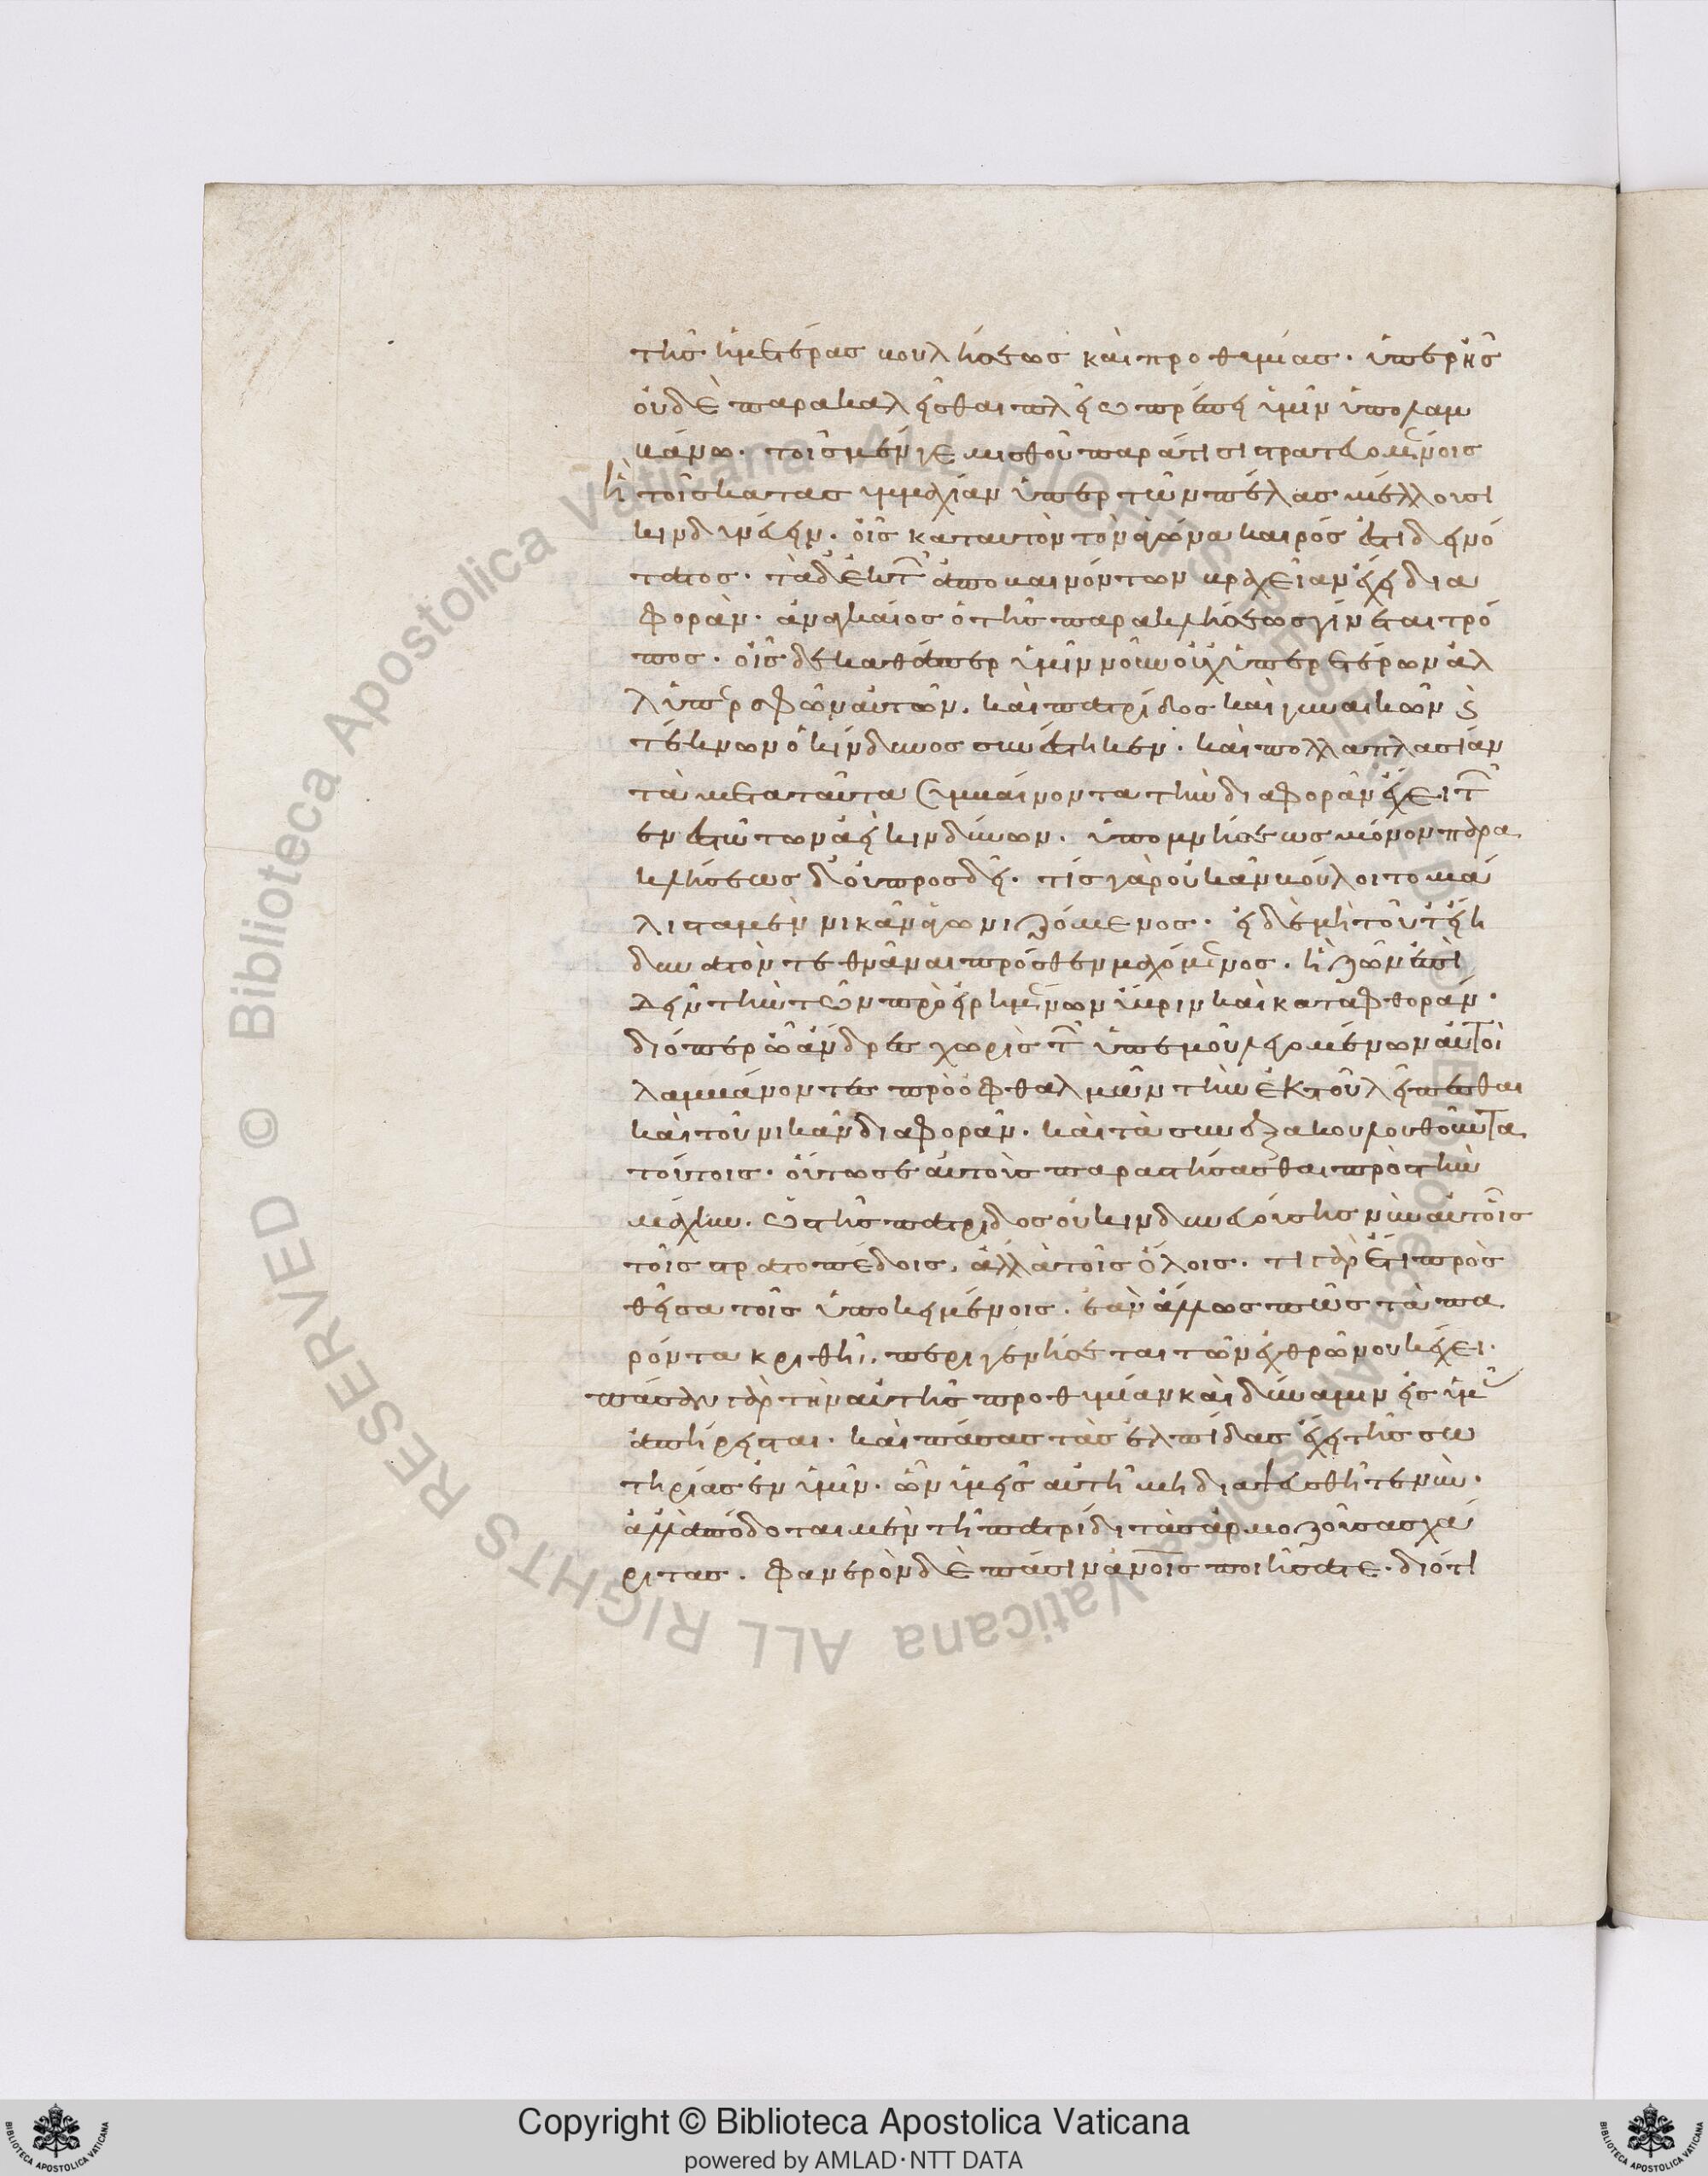 τῆς ἡμετέρας βουλήσεως καὶ προθυμίας. ὑπερ ἧς
οὐδὲ παρακαλεῖσθαι πλείω πρέπει ὑμῖν ὑπολαμ
βάνω. τοῖς μέν γε μισθοῦ παρά τισι στρατευομένοις
ἢ τοῖς κατὰ συμμαχίαν ὑπερ τῶν πέλας μέλλουσι
κινδυνεύειν. οἷς κατ αὐτὸν τὸν ἀγῶνα καιρός ἐστι δεινό
τατος. τὰ δ ἐκ τῶν ἀποβαινόντων βραχεῖαν ἔχει δια
φοράν. ἀναγκαῖος ὁ τῆς παρακλήσεως γίνεται τρό
πος. οἷς δὲ καθάπερ ὑμῖν νῦν οὐχ ὑπερ ετέρων ἀλ
λ ὑπὲρ σφῶν αὐτῶν. καὶ πατρίδος καὶ γυναικῶν καὶ
τέκνων ὁ κίνδυνος συνέστηκεν. καὶ πολλαπλασίαν
τὰ μετα ταῦτα συμβαίνοντα τὴν διαφορὰν ἔχει τῶν
ενεστώτων ἀεὶ κινδύνων. ὑπομνήσεως μόνον παρα
κλήσεως δ οὐ προσδεῖ. τίς γὰρ οὐκ ἂν βούλοιτο μά
λιστα μὲν νικᾶν ἀγωνιζόμενος. εἰ δὲ μὴ τοῦτ εἴη
δυνατὸν τεθνᾶναι πρόσθεν μαχόμενος. ἢ ζῶν ἐπι
δεῖν τὴν τῶν προειρημένων ὕβριν καὶ καταφθοράν.
διόπερ ὦ ἄνδρες χωρὶς τῶν ὑπ εμοῦ λεγομένων αὐτοὶ
λαμβάνοντες πρὸ ὀφθαλμῶν τὴν ἐκ τοῦ λείπεσθαι
καὶ τοῦ νικᾶν διαφορὰν. καὶ τὰ συνεξακολουθοῦντα
τούτοις. οὕτως ἑαυτοὺς παραστήσασθαι πρὸς τὴν
μάχην. ὡς τῆς πατρίδος οὐ κινδυνευούσης νῦν αὐτοῖς
τοῖς στρατοπέδοις. ἀλλὰ τοῖς ὅλοις. τί γὰρ ἔτι προσ
θεῖσα τοῖς ὑποκειμένοις. ἐὰν ἄλλως πως τὰ πα
ρόντα κριθῆι. περιγενήσεται τῶν ἐχθρῶν οὐκ ἔχει.
πᾶσαν γὰρ τὴν αὑτῆς προθυμίαν καὶ δύναμιν εἰς ὑμᾶς
ἀπήρεισται. καὶ πάσας τὰς ἐλπίδας ἔχει τῆς σω
τηρίας ἐν ὑμῖν. ὧν ὑμεῖς αὐτὴν μὴ διαψευσθῆτε νῦν.
ἀλλ ἀπόδοται μὲν τῆ πατρίδι τὰς ἁρμοζούσας χά
ριτας. φανερὸν δὲ πᾶσιν ἀνοις ποιήσατε. διότι
Copyright © Biblioteca Apostolica Vaticana
powered by AMLAD·NTT DATA